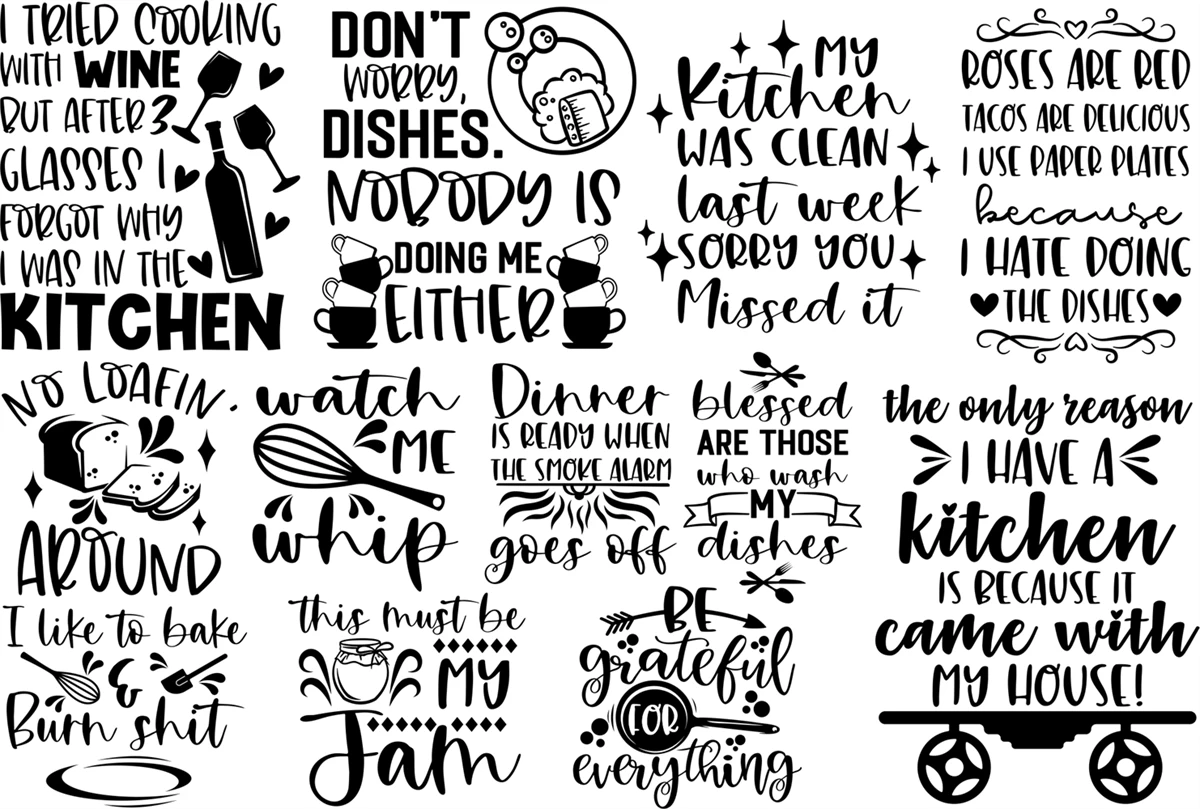 I TRIED COOKING
WITH WINE
BUT AFTER 3
GLASSES I
FORGOT WHY
I WAS IN THE
KITCHEN
DON'T
WORRY,
DISHES.
NOBODY IS
DOING ME
EITHER
MY
Kitchen
WAS CLEAN
last week
SORRY YOU
Missed it
ROSES ARE RED
TACOS ARE DELICIOUS
I USE PAPER PLATES
because
I HATE DOING
THE DISHES
NO LOAFIN.
AROUND
watch
ME
whip
Dinner
IS READY WHEN
THE SMOKE ALARM
goes off
blessed
ARE THOSE
who wash
MY
dishes
the only reason
I HAVE A
kitchen
IS BECAUSE IT
came with
MY HOUSE!
I like to bake
&
Burn shit
this must be
MY
Jam
BE
grateful
FOR
everything